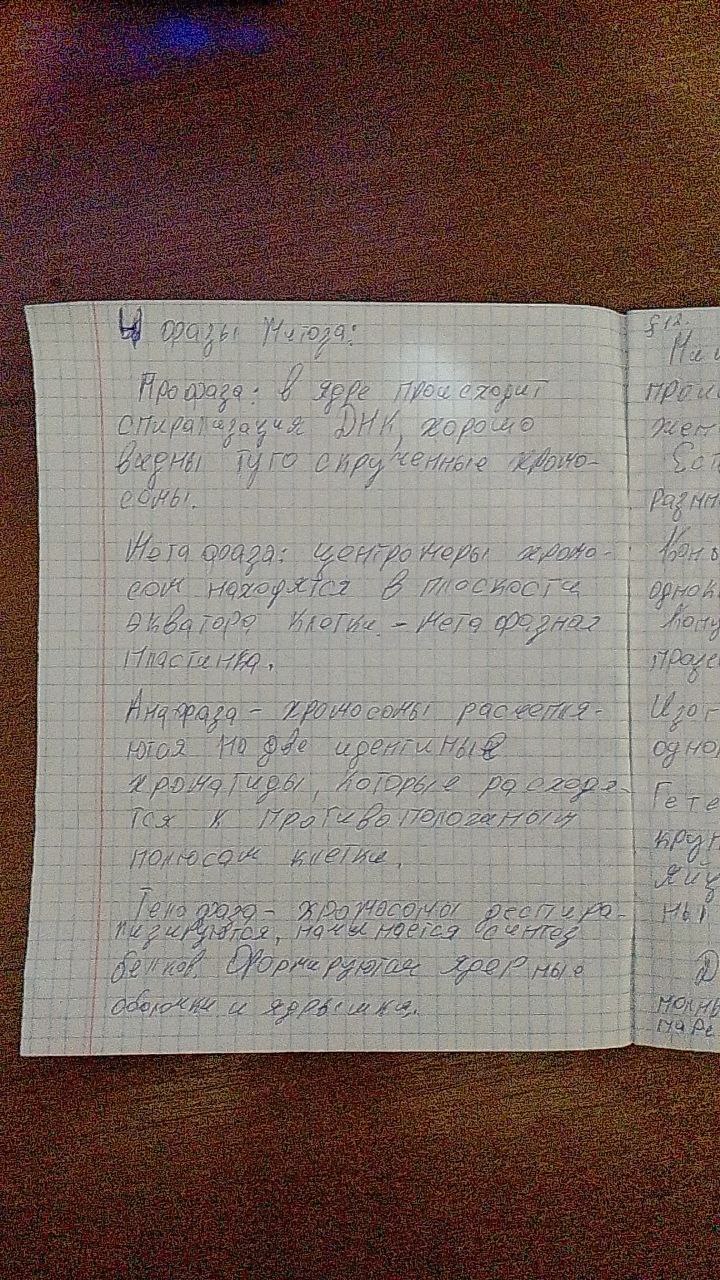 4 фазы Митоза:
Профаза: в ядре происходит
спирализация ДНК, хорошо
видны туго скрученные хромо-
сомы.
Метафаза: центромеры хромо-
сом находятся в плоскости
экватора клетки. - метафазная
пластинка.
Анафаза - хромосомы расщепля-
ются на две идентиные
хроматиды, которые расходя-
тся к противоположным
полюсам клетки.
Телофаза - хромосомы деспира-
лизируются, начинается синтез
белков. Формируются ядерные
оболочки и ядрышки.
§ 12.
жен
Ест
разм
одно
Изог
одно
Гете
круп
яйц
ны
Д